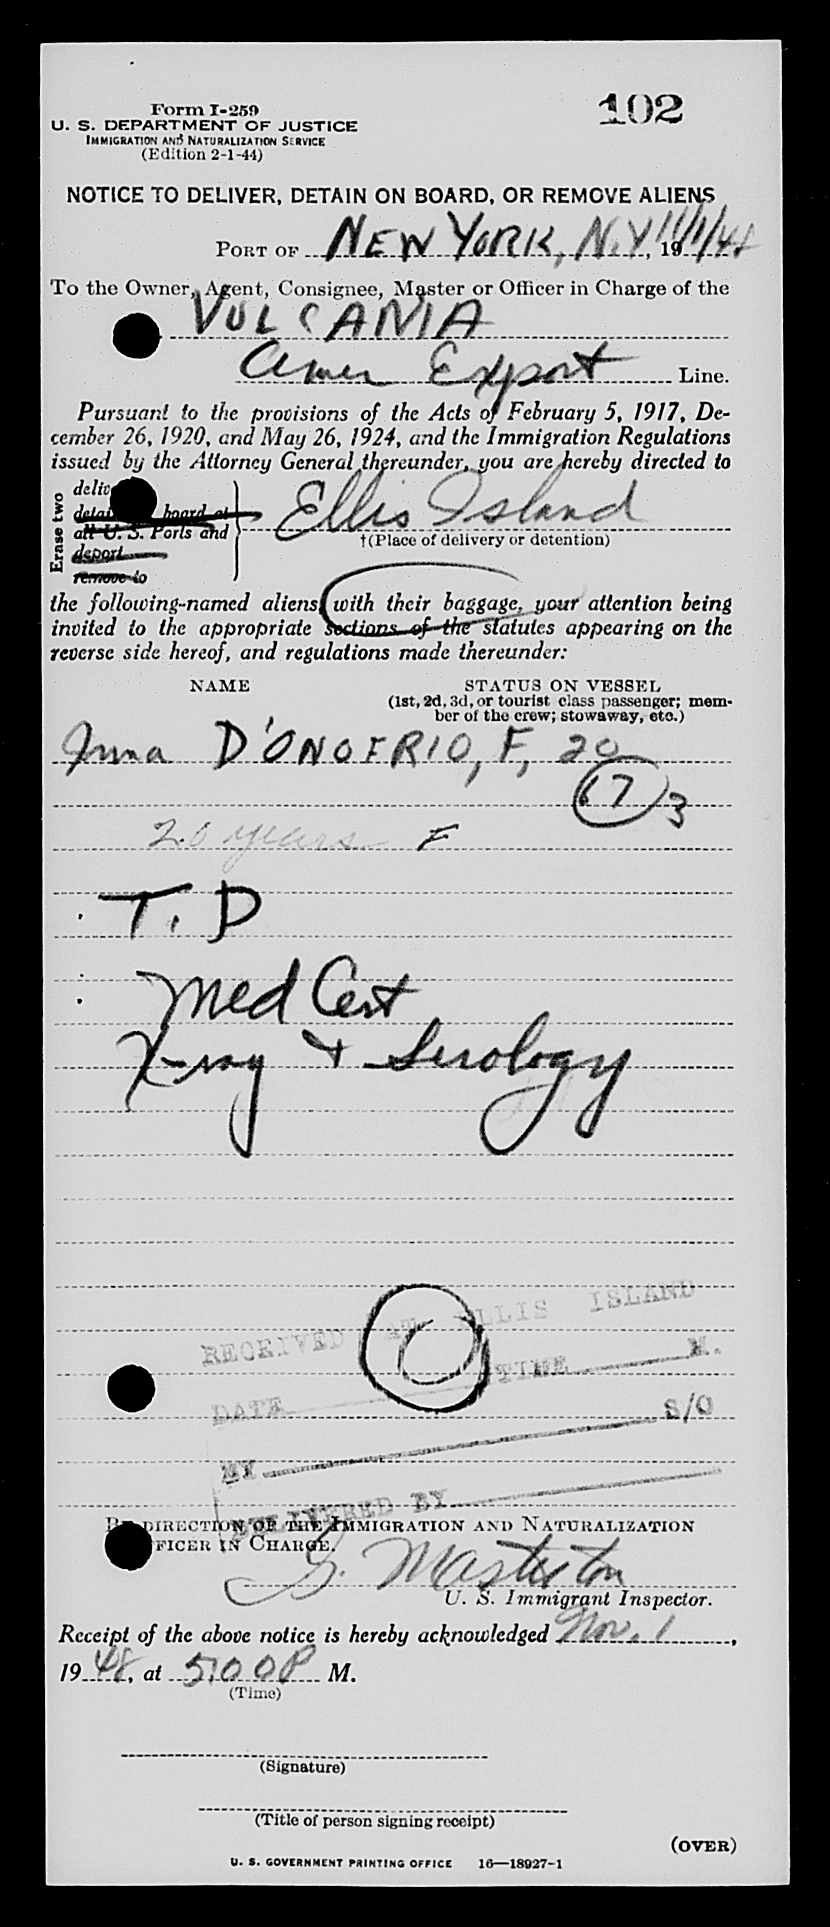 Form I-259
102
U. S. DEPARTMENT OF JUSTICE
IMMIGRATION AND NATURALIZATION SERVICE
(Edition 2-1-44)
NOTICE TO DELIVER, DETAIN ON BOARD, OR REMOVE ALIENS
PORT OF NEW YORK, N.Y., 19 11/1/48
To the Owner, Agent, Consignee, Master or Officer in Charge of the
VULCANIA
Amer Export Line.
Pursuant to the provisions of the Acts of February 5, 1917, De-
cember 26, 1920, and May 26, 1924, and the Immigration Regulations
issued by the Attorney General thereunder, you are hereby directed to
Erase two
deliv
detai board at
all U. S. Ports and
deport
remove to
Ellis Island
†(Place of delivery or detention)
the following-named aliens, with their baggage, your attention being
invited to the appropriate sections of the statutes appearing on the
reverse side hereof, and regulations made thereunder:
NAME STATUS ON VESSEL
(1st, 2d, 3d, or tourist class passenger; mem-
ber of the crew; stowaway, etc.)
D'ONOFRIO, F, 20
67 3
20 years F
T. D
Med Cert
X-ray + Serology
RECEIVED AT ELLIS ISLAND
DATE TIME M.
BY S/O
DELIVERED BY
BY DIRECTION OF THE IMMIGRATION AND NATURALIZATION
FFICER IN CHARGE.
G. Masterton
U. S. Immigrant Inspector.
Receipt of the above notice is hereby acknowledged Nov. 1,
19 48, at 5:00 P M.
(Time)
(Signature)
(Title of person signing receipt)
(OVER)
U. S. GOVERNMENT PRINTING OFFICE 16—18927-1